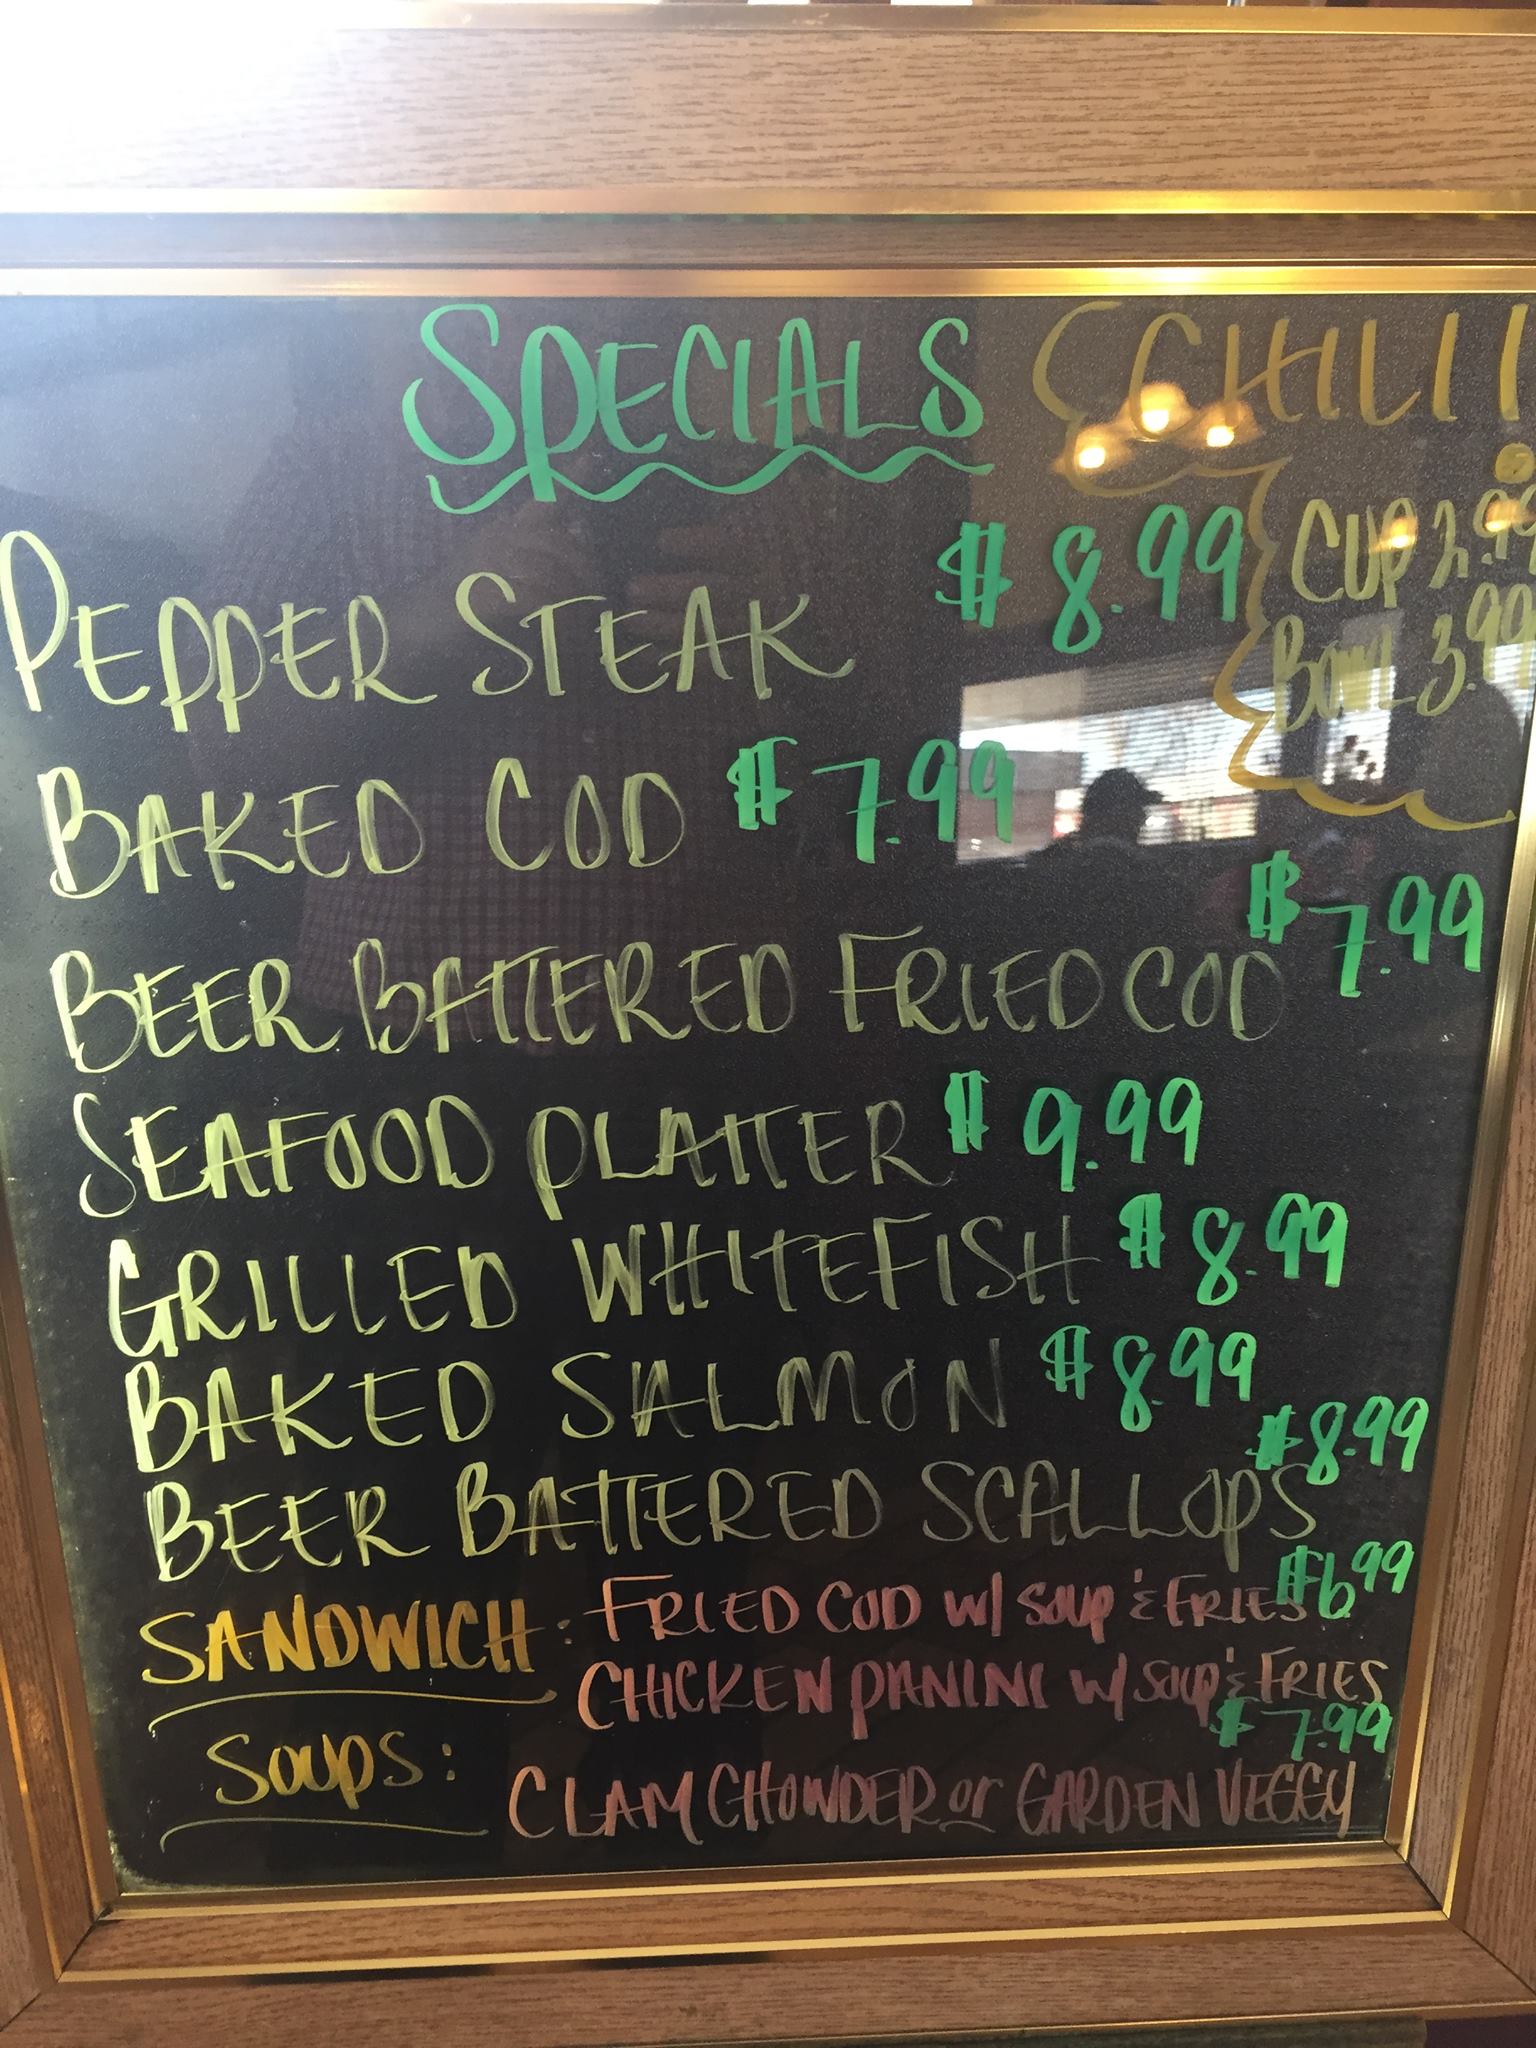 SPECIALS
CHILI!
CUP 2.99
BOWL 3.99
PEPPER STEAK $8.99
BAKED COD $7.99
BEER BATTERED FRIED COD $7.99
SEAFOOD PLATTER $9.99
GRILLED WHITEFISH $8.99
BAKED SALMON $8.99
BEER BATTERED SCALLOPS $8.99
SANDWICH: FRIED COD w/ SOUP & FRIES $6.99
CHICKEN PANINI w/ SOUP & FRIES
$7.99
SOUPS: CLAM CHOWDER or GARDEN VEGGY